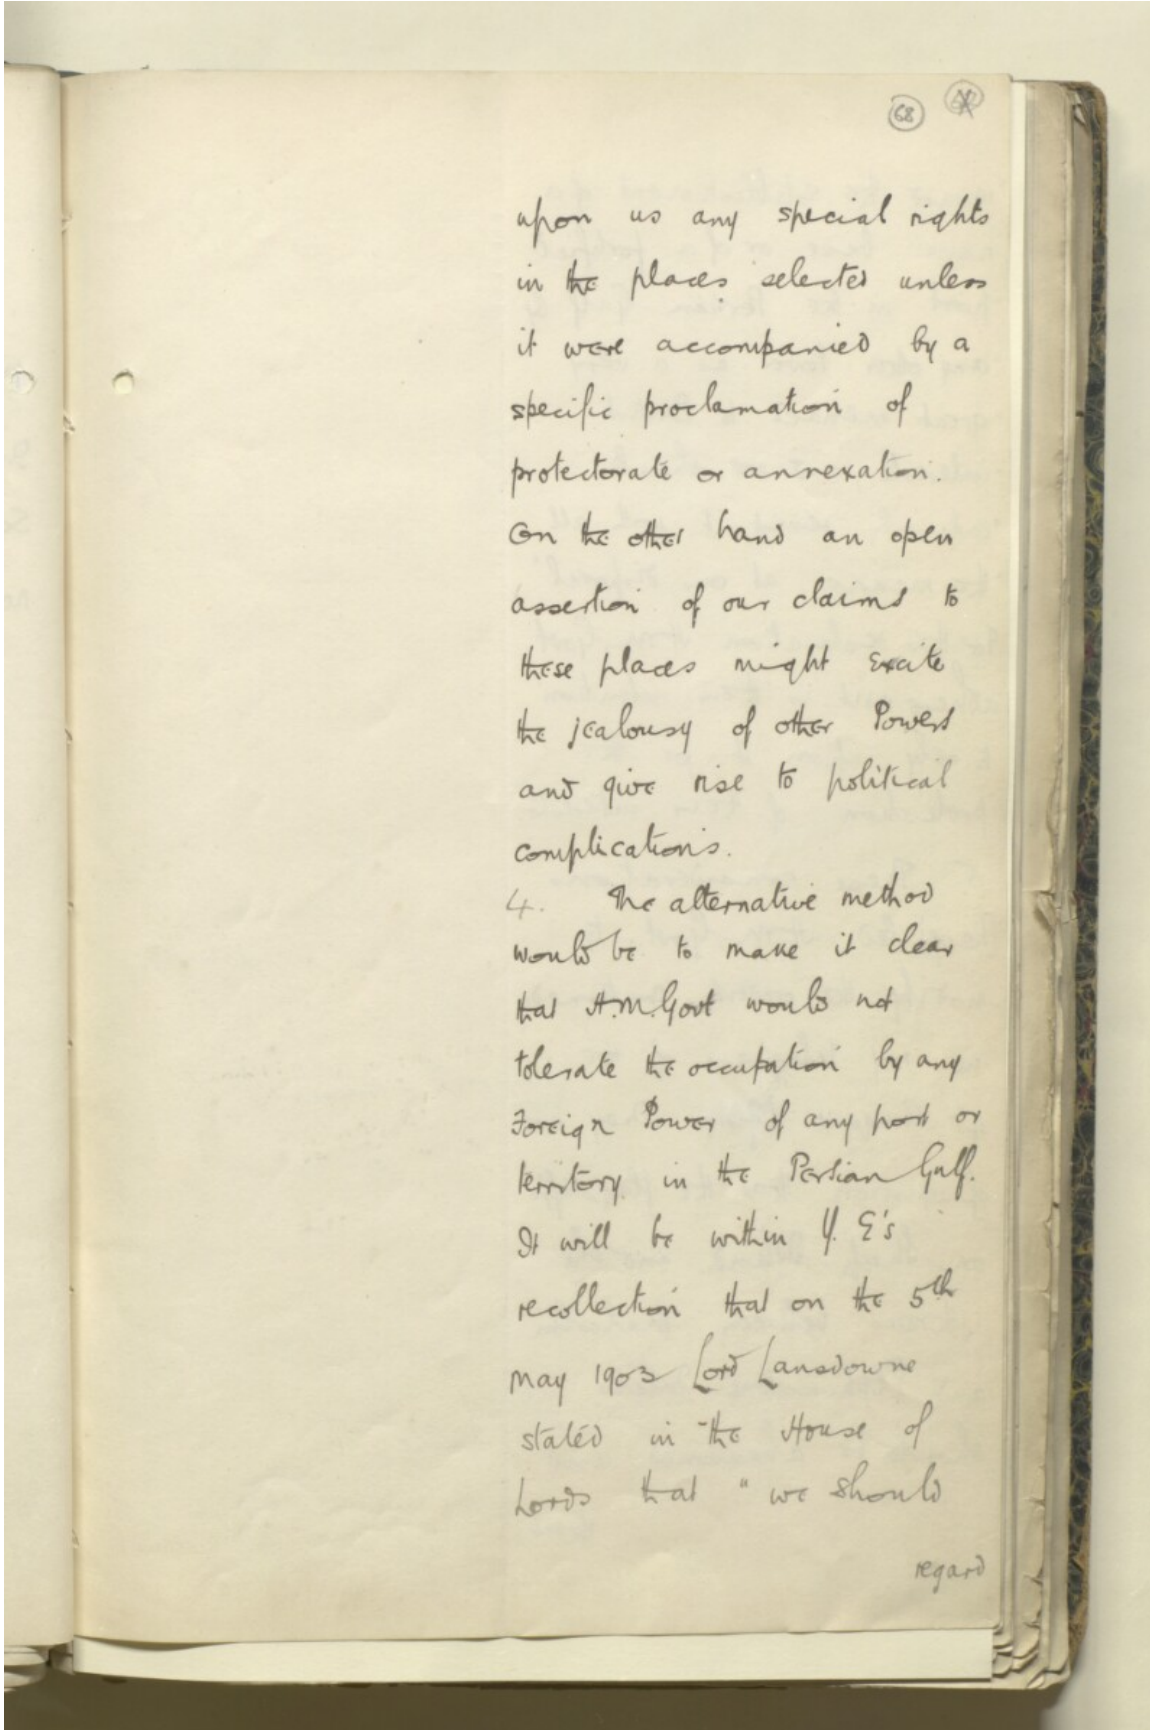 68
upon us any special rights
in the places selected unless
it were accompanied by a
specific proclamation of
protectorate or annexation.
On the other hand an open
assertion of our claims to
these places might excite
the jealousy of other Powers
and give rise to political
complications.
4. The alternative method
would be to make it clear
that H.M. Govt would not
tolerate the occupation by any
Foreign Power of any port or
territory in the Persian Gulf.
It will be within Y. E's
recollection that on the 5th
May 1903 Lord Lansdowne
stated in the House of
Lords that " we should
regard